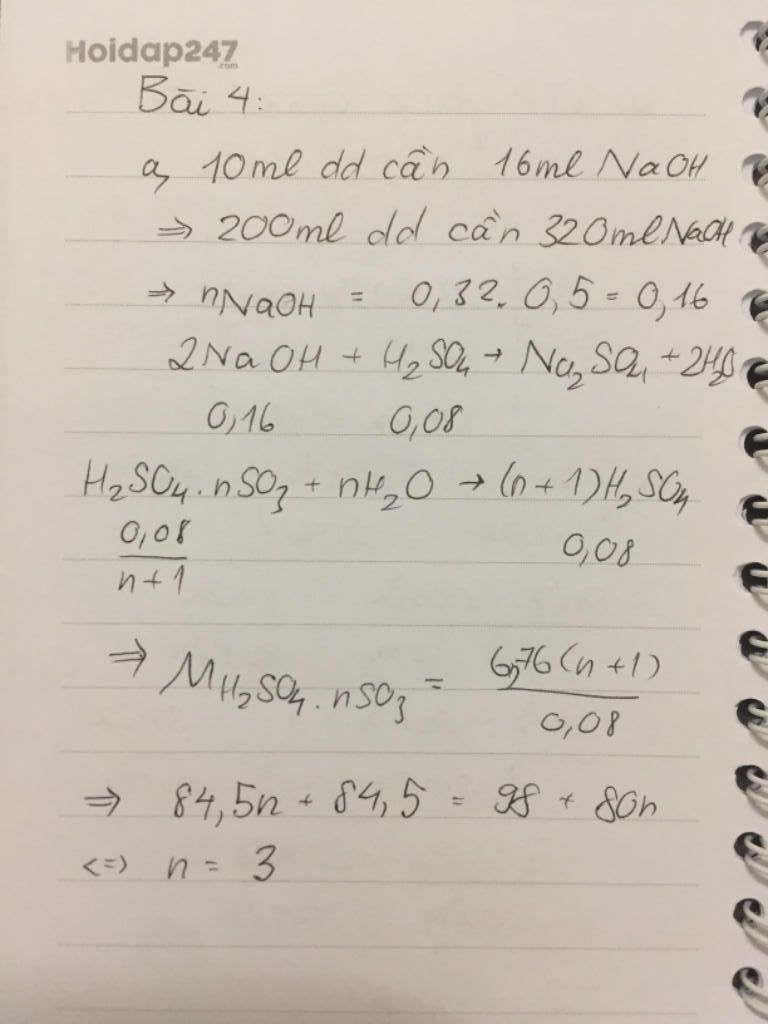 Hoidap247
.com
Bài 4:
a, 10ml dd cần 16ml NaOH
⇒ 200ml dd cần 320ml NaOH
⇒ nNaOH = 0,32. 0,5 = 0,16
2NaOH + H₂SO₄ → Na₂SO₄ + 2H₂O
0,16 0,08
H₂SO₄.nSO₃ + nH₂O → (n+1)H₂SO₄
0,08 0,08
n+1
6,76(n+1)
⇒ M H₂SO₄.nSO₃ =
0,08
⇒ 84,5n + 84,5 = 98 + 80n
<=> n = 3